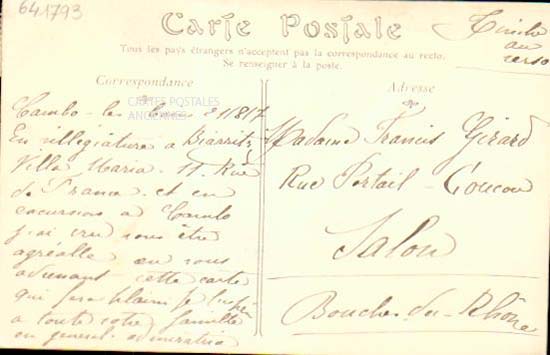 641793
Carte Postale
Timbre
au
verso
Tous les pays étrangers n'acceptent pas la correspondance au recto.
Se renseigner à la poste.
Correspondance
Cambo-les 21/8/17
CARTES POSTALES
ANCIENNES
En villégiature a Biarritz
Villa Maria. 11. Rue
de France et en
excursion a Cambo
j'ai cru vous être
agréable en vous
adressant cette carte
qui fera plaisir je
a toute votre famille
en général
Adresse
Madame Francis Girard
Rue Portail-Coucou
Salon
Bouches-du-Rhône